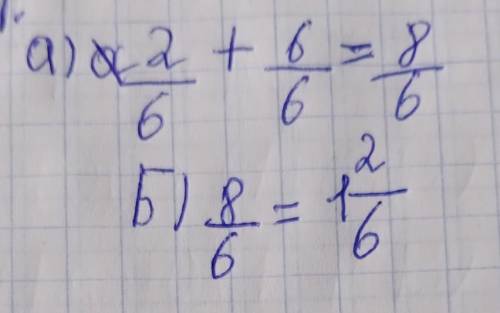 а) 2/6 + 6/6 = 8/6
Б) 8/6 = 1 2/6